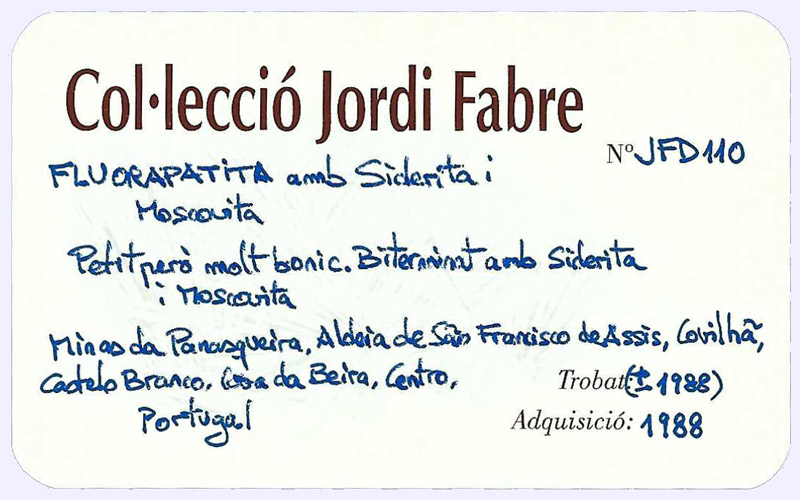 Col·lecció Jordi Fabre
Nº JFD110
FLUORAPATITA amb Siderita i
Moscovita
Petit però molt bonic. Biterminat amb Siderita
i Moscovita
Minas da Panasqueira, Aldeia de São Francisco de Assis, Covilhã,
Castelo Branco, Cova da Beira, Centro,
Portugal
Trobat: (± 1988)
Adquisició: 1988